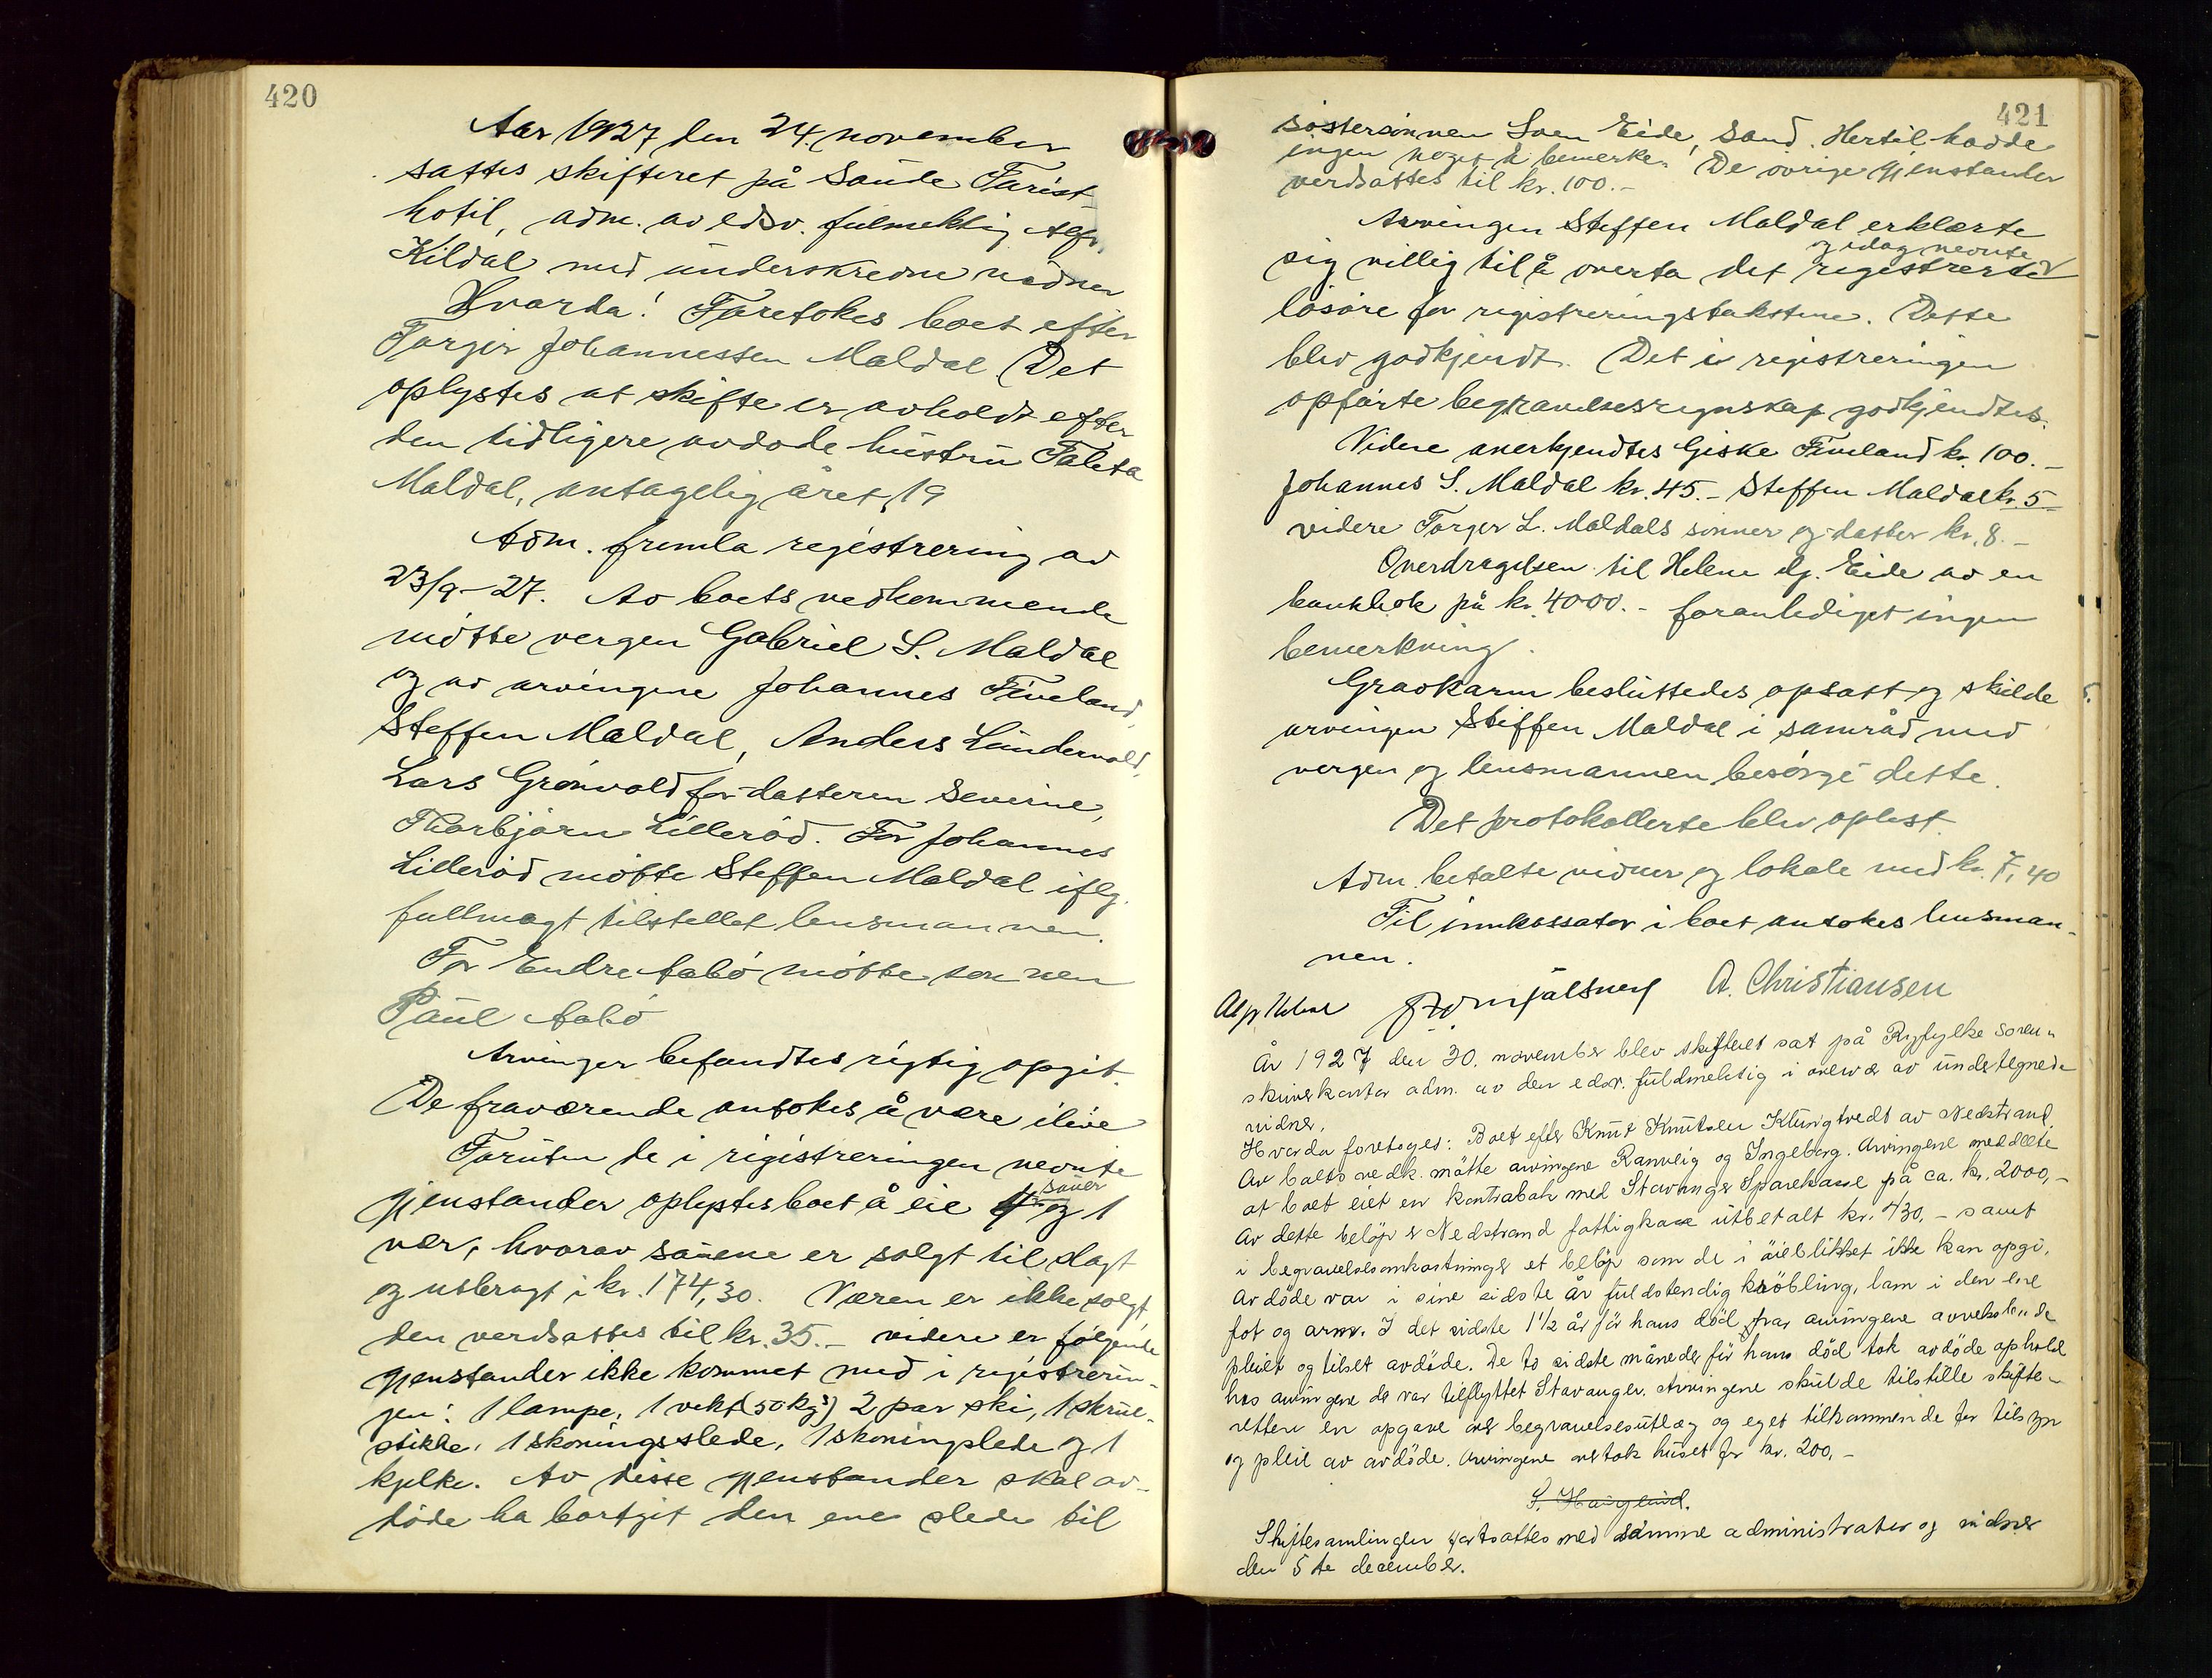 420
Aar 1927 den 24. november
sattes skifteret på Saude Turist
hotil, adm. av edsv. fulmektig Alf.
Kildal med underskrevne vidner
Hvorda! Foretokes boet efter
Torger Johannessen Maldal. Det
oplystes at skifte er avholdt efter
den tidligere avdøde hustru Taleta
Maldal, antagelig året 19
Adm. fremla registrering av
23/9-27. Av boets vedkommende
møtte vergen Gabriel S. Maldal
og av arvingene Johannes Fiveland,
Steffen Maldal, Anders Lundervold,
Lars Grønvold for datteren Severine,
Thorbjørn Lillerød. For Johannes
Lillerød møtte Steffen Maldal iflg.
fullmagt tilstellet lensmannen.
For Endre Aabø møtte sønnen
Paul Aabø
Arvinger befandtes rigtig opgit.
De fraværende antokes å være ilive
Foruten de i registreringen nevnte
gjenstander oplystes boet å eie 4 sauer og 1
vær, hvorav sauene er solgt til slagt
og utbragt i kr. 174,30. Væren er ikke solgt,
den verdsattes til kr. 35.- videre er følgende
gjenstander ikke kommet med i registrerin-
gen: 1 lampe, 1 vekt (50 kg's) 2 par ski, 1 skrue-
stikke, 1 skoningsslede, 1 skoningslede og 1
kjelke. Av disse gjenstander skal av-
døde ha bortgit den ene slede til
421
søstersønnen Sven Eide, Sand. Hertil hadde
ingen noget å bemerke. De øvrige gjenstander
verdsattes til kr. 100.-
Arvingen Steffen Maldal erklærte
og idag nevnte
sig villig til å overta det registrerte
løsøre for registreringstakstene. Dette
blev godkjendt. Det i registreringen
opførte begravelsesregnskap godkjendtes.
Videre anerkjendtes Giske Fiveland kr. 100.-
Johannes S. Maldal kr. 45.- Steffen Maldal kr. 5-
videre Torger L. Maldals sønner og datter kr. 8.-
Overdragelsen til Helene Eide av en
bankbok på kr. 4000.- foranlediget ingen
bemerkning.
Gravkarm besluttedes opsatt og skulde
arvingen Steffen Maldal i samråd med
vergen og lensmannen besørge dette.
Det protokollerte blev oplest.
Adm. betalte vidner og lokale med kr. 7,40
Til innkassator i boet antokes lensman-
nen.
A. Christiansen
År 1927 den 30. november blev skifteret sat på Ryfylke soren-
skriverkontor adm. av den edsv. fuldmektig i overvær av undertegnede
vidner.
Hvorda foretoges: Boet efter Knut Knutsen Klungtvedt av Nedstrand.
Av boets vedk. møtte arvingene Ranveig og Ingeborg. Arvingene meddelte
at boet eiet en kontrabok med Stavanger Sparekasse på ca. kr. 2000,-
Av dette beløp er Nedstrand fattigkasse utbetalt kr. 430,- samt
i begravelsesomkostninger et beløp som de i øieblikket ikke kan opgi.
Avdøde var i sine sidste år fuldstendig krøbling, lam i den ene
fot og arm. I det sidste 1½ år før hans død har arvingene avvekslende
pleiet og tilset avdøde. De to sidste måneder før hans død tok avdøde ophold
hos arvingene der var tilflyttet Stavanger. Arvingene skulde tilstille skifte-
retten en opgave over begravelsesutlæg og eget tilkommende for tilsyn
og pleie av avdøde. Arvingene overtok huset for kr. 200,-
S. Hauglund.
Skiftesamlingen fortsattes med samme administrator og vidner
den 5te december.